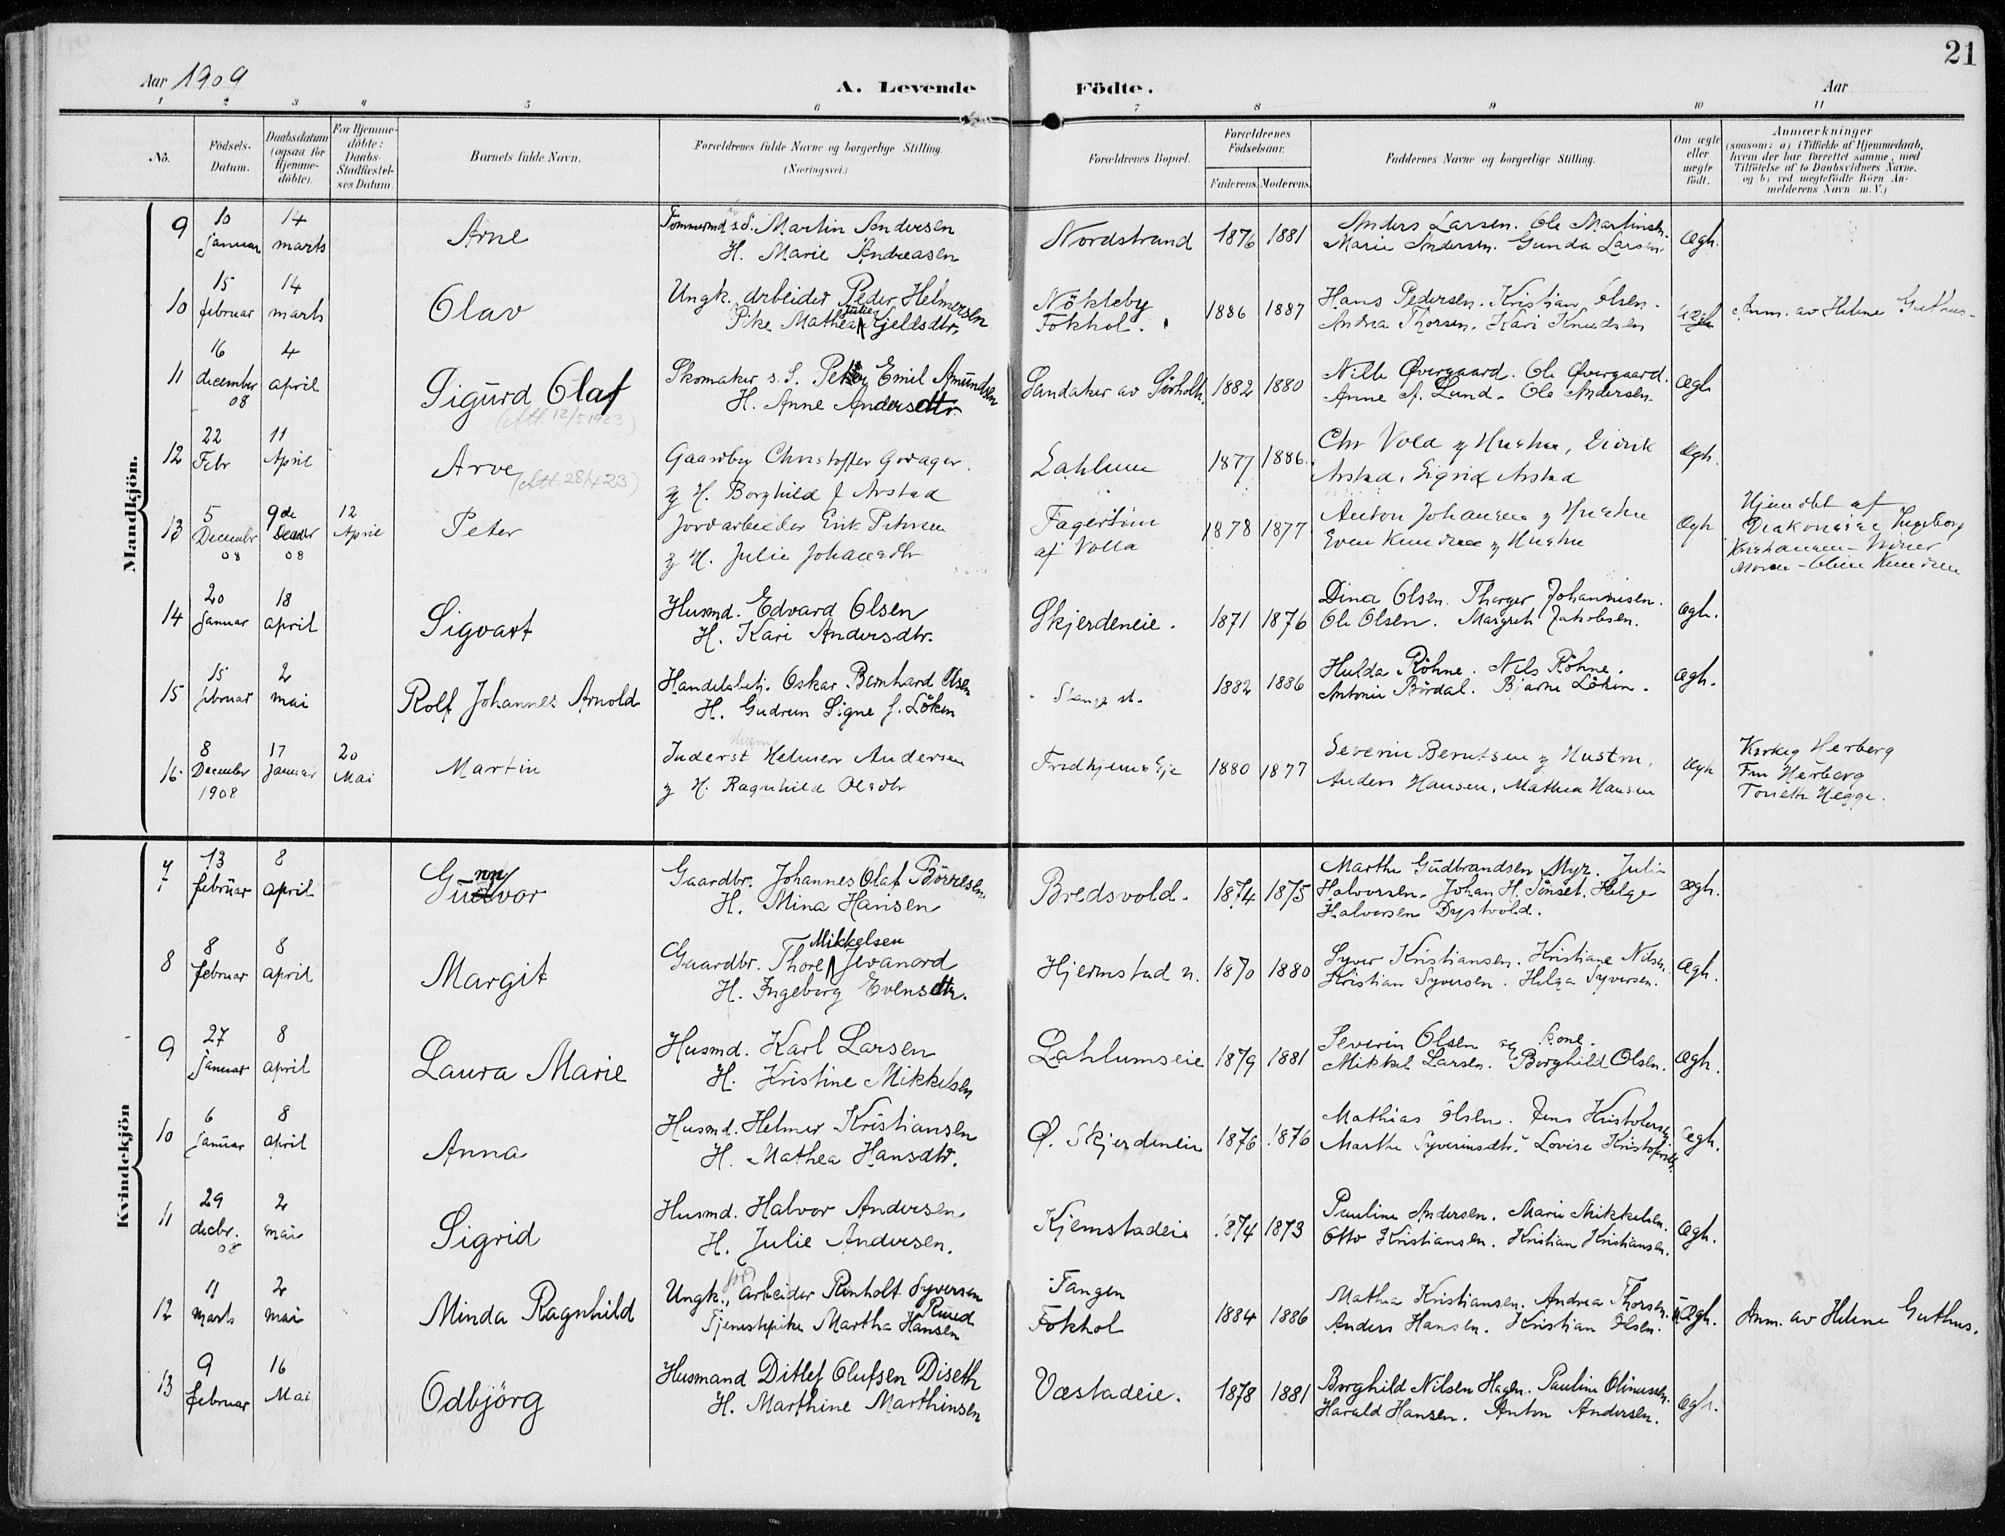 21
Aar 1909
A. Levende Födte.
Aar
1 2 3 4 5 6 7 8 9 10 11
No.
Födsels-Datum.
Daabsdatum (ogsaa for Hjemme-döbte).
For Hjemme-döbte: Daabs-Stadfæstel-ses Datum.
Barnets fulde Navn.
Forældrenes fulde Navne og borgerlige Stilling. (Næringsvei.)
Forældrenes Bopæl.
Forældrenes Födselsaar.
Faderens. Moderens.
Faddernes Navne og borgerlige Stilling.
Om ægte eller uægte födt.
Anmærkninger (saasom: a) i Tilfælde af Hjemmedaab, hvem der har forrettet samme, med Tilföielse af to Daabsvidners Navne, og b) ved uægtefödte Börn Anmelderens Navn m. V.)
Mandkjön.
9 10 januar 14 marts Arne
Tømmermd s.S. Martin Andersen
H. Marie Andreasen
Nordstrand 1876 1881
Anders Larsen. Ole Martinsen.
Marie Andersen. Gunda Larsen.
Ægh.
10 15 februar 14 marts Olav
Ungk. arbeider Peder Helmersen
Pike Mathea Julie Kjeldsdtr.
Nökleby
Fokhol. 1886 1887
Hans Pedersen. Kristian Olsen.
Andrea Thorsen. Kari Knudsen
Uægh
Anm. av Helene Guthus.
11 16 december 08 4 april Sigurd Olaf
(Att. 12/5 1923)
Skomaker s.S. Peter Emil Amundsen
H. Anne Andersdtr.
Sandaker av Sörholte. 1882 1880
Nille Øvergaard. Ole Øvergaard.
Anne A. Lund. Ole Andersen.
Ægh
12 22 Febr 11 April Arve
(Att. 28/4 23)
Gaardbr Christoffer Gorager.
og H. Borghild f Arstad
Lahlum 1877 1886.
Chr Vold og Hustru, Eirik
Arstad, Sigrid Arstad
Ægh.
13 5 December 08 9de Decbr 08 12 April Peter
Jordarbeider Erik Petersen
og H. Julie Johansdtr
Fagertun
af Volla 1878 1877
Anton Johansen og Hustru
Even Knudsen og Hustru
Ægh
Hjemdöbt af
Diakonisse Ingeborg
Kristiansen - Vidner
Moren - Oline Knudsen
14 20 januar 18 april Sigvart
Husmd. Edvard Olsen
H. Kari Andersdtr.
Skjerdeneie. 1871 1876
Dina Olsen. Thorger Johannesen.
Ole Olsen. Margreth Jakobsen.
Ægh.
15 15 februar 2 mai Rolf Johannes Arnold
Handelsbetj. Oskar Bernhard Olsen
H. Gudrun Signe f. Löken
Stange st. 1882 1886
Hulda Röhne. Nils Röhne.
Antonie Bördal. Bjarne Löken.
Ægh.
16 8 December 1908 17 Januar 20 Mai Martin
Inderst Helmer Andersen
og H. Ragnhild Olsdtr
Fredhjem Eje 1880 1877
Severin Berntsen og Hustru,
Anders Hansen, Mathea Hansen
Ægh
Kirkeg Herberg
Fru Herberg
Toneth Hegge.
Kvindekjön
7 13 februar 8 april Gunnvor
Gaardbr. Johannes Olaf Börresen
H. Mina Hansen
Bredsvold. 1874 1875
Marthe Gudbrandsen Myr. Julie
Halvorsen. Johan H. Sönset. Helge
Halvorsen Dystvold.
ægh.
8 8 februar 8 april Margit
Gaardbr. Thore Mikkelsen Jevanord
H. Ingeborg Evensdtr.
Hjermstad n. 1870 1880
Syver Kristiansen. Kristiane Nilsen.
Kristian Syversen. Helga Syversen.
Ægh.
9 27 januar 8 april Laura Marie
Husmd. Karl Larsen
H. Kristine Mikkelsen
Lahlumseie 1879 1881
Severin Olsen og Kone.
Mikkel Larsen. Borghild Olsen.
Ægh.
10 6 januar 8 april Anna
Husmd. Helmer Kristiansen
H. Mathea Hansdtr.
Ø. Skjerdeneie 1876 1876
Mathias Olsen. Jens Kristofersen.
Marthe Syverinsdtr. Lovise Kristofersdtr.
Ægh.
11 29 decbr. 08 2 mai Sigrid
Husmd. Halvor Andersen.
H. Julie Andersen.
Kjemstadeie 1874 1873
Pauline Andersen. Marie Mikkelsen.
Otto Kristiansen. Kristian Kristiansen.
Ægh.
12 11 marts 2 mai Minda Ragnhild
Ungk., arbeider Reinholt Syversen
Tjenestepike Martha Hansen Ruud
Tangen
Fokhol 1884 1886
Mathea Kristiansen. Andrea Thorsen.
Anders Hansen. Kristian Olsen.
UÆgh.
Anm. av Helene Guthus.
13 9 februar 16 Mai Odbjörg
Husmand Ditlef Olufsen Diseth
H. Marthine Marthinsen
Væstadeie. 1878 1881
Borghild Nilsen Hagen. Pauline Olinussen.
Harald Hansen. Anton Andersen.
Ægh.